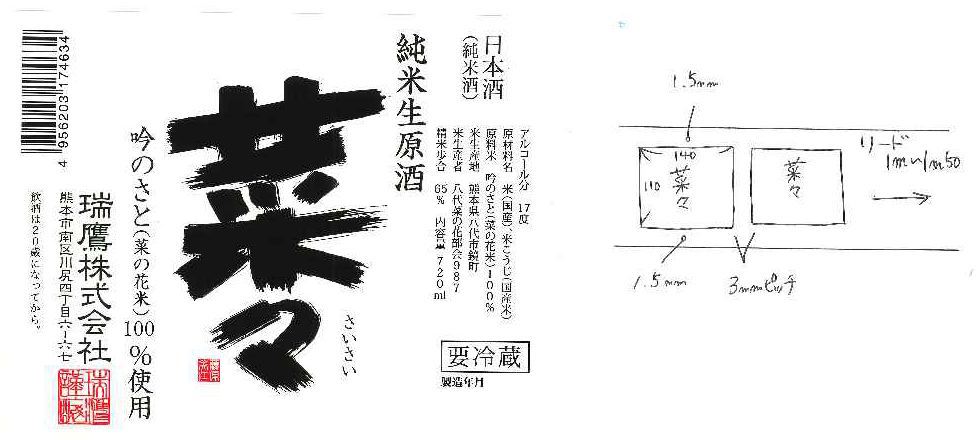 日本酒
(純米酒)
純米生原酒
アルコール分 17度
原材料名 米(国産)、米こうじ(国産米)
原料米 吟のさと(菜の花米)100%
米生産地 熊本県八代市鏡町
米生産者 八代菜の花部会987
精米歩合 65% 内容量 720ml
要冷蔵
製造年月
菜々
さいさい
吟のさと(菜の花米)100%使用
瑞鷹株式会社
熊本市南区川尻四丁目六-六七
飲酒は20歳になってから。
4 956203 174634
1.5mm
140
110
菜々
菜々
リード
1m~1m50
1.5mm
3mmピッチ